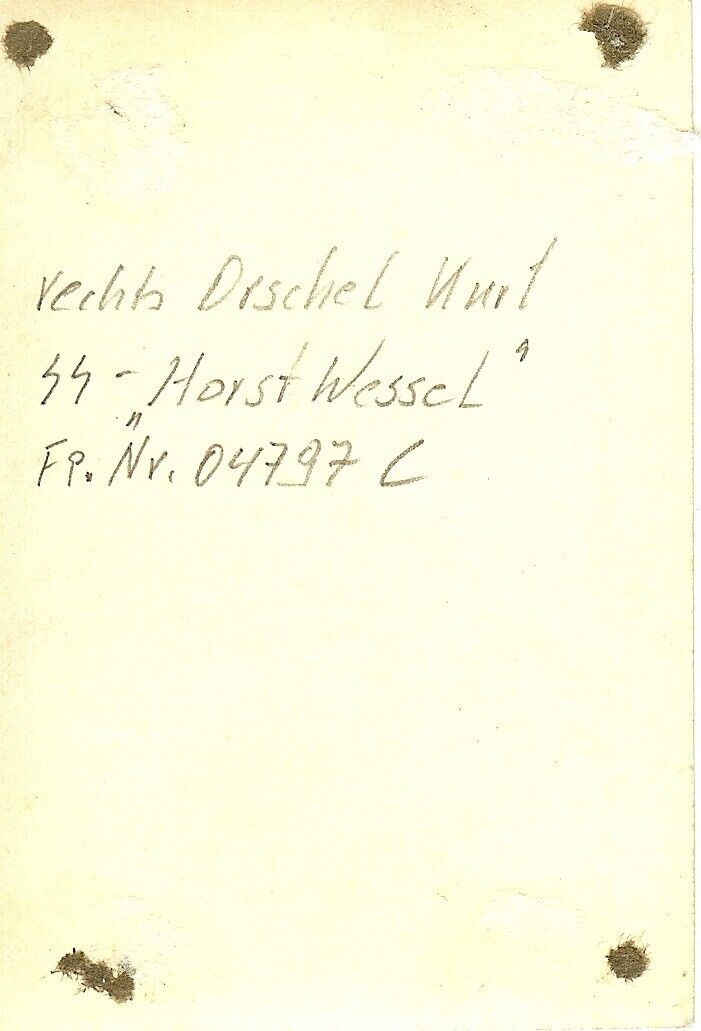 rechts Drschel Kurt
SS - „Horst Wessel“
Fp. Nr. 04797 C